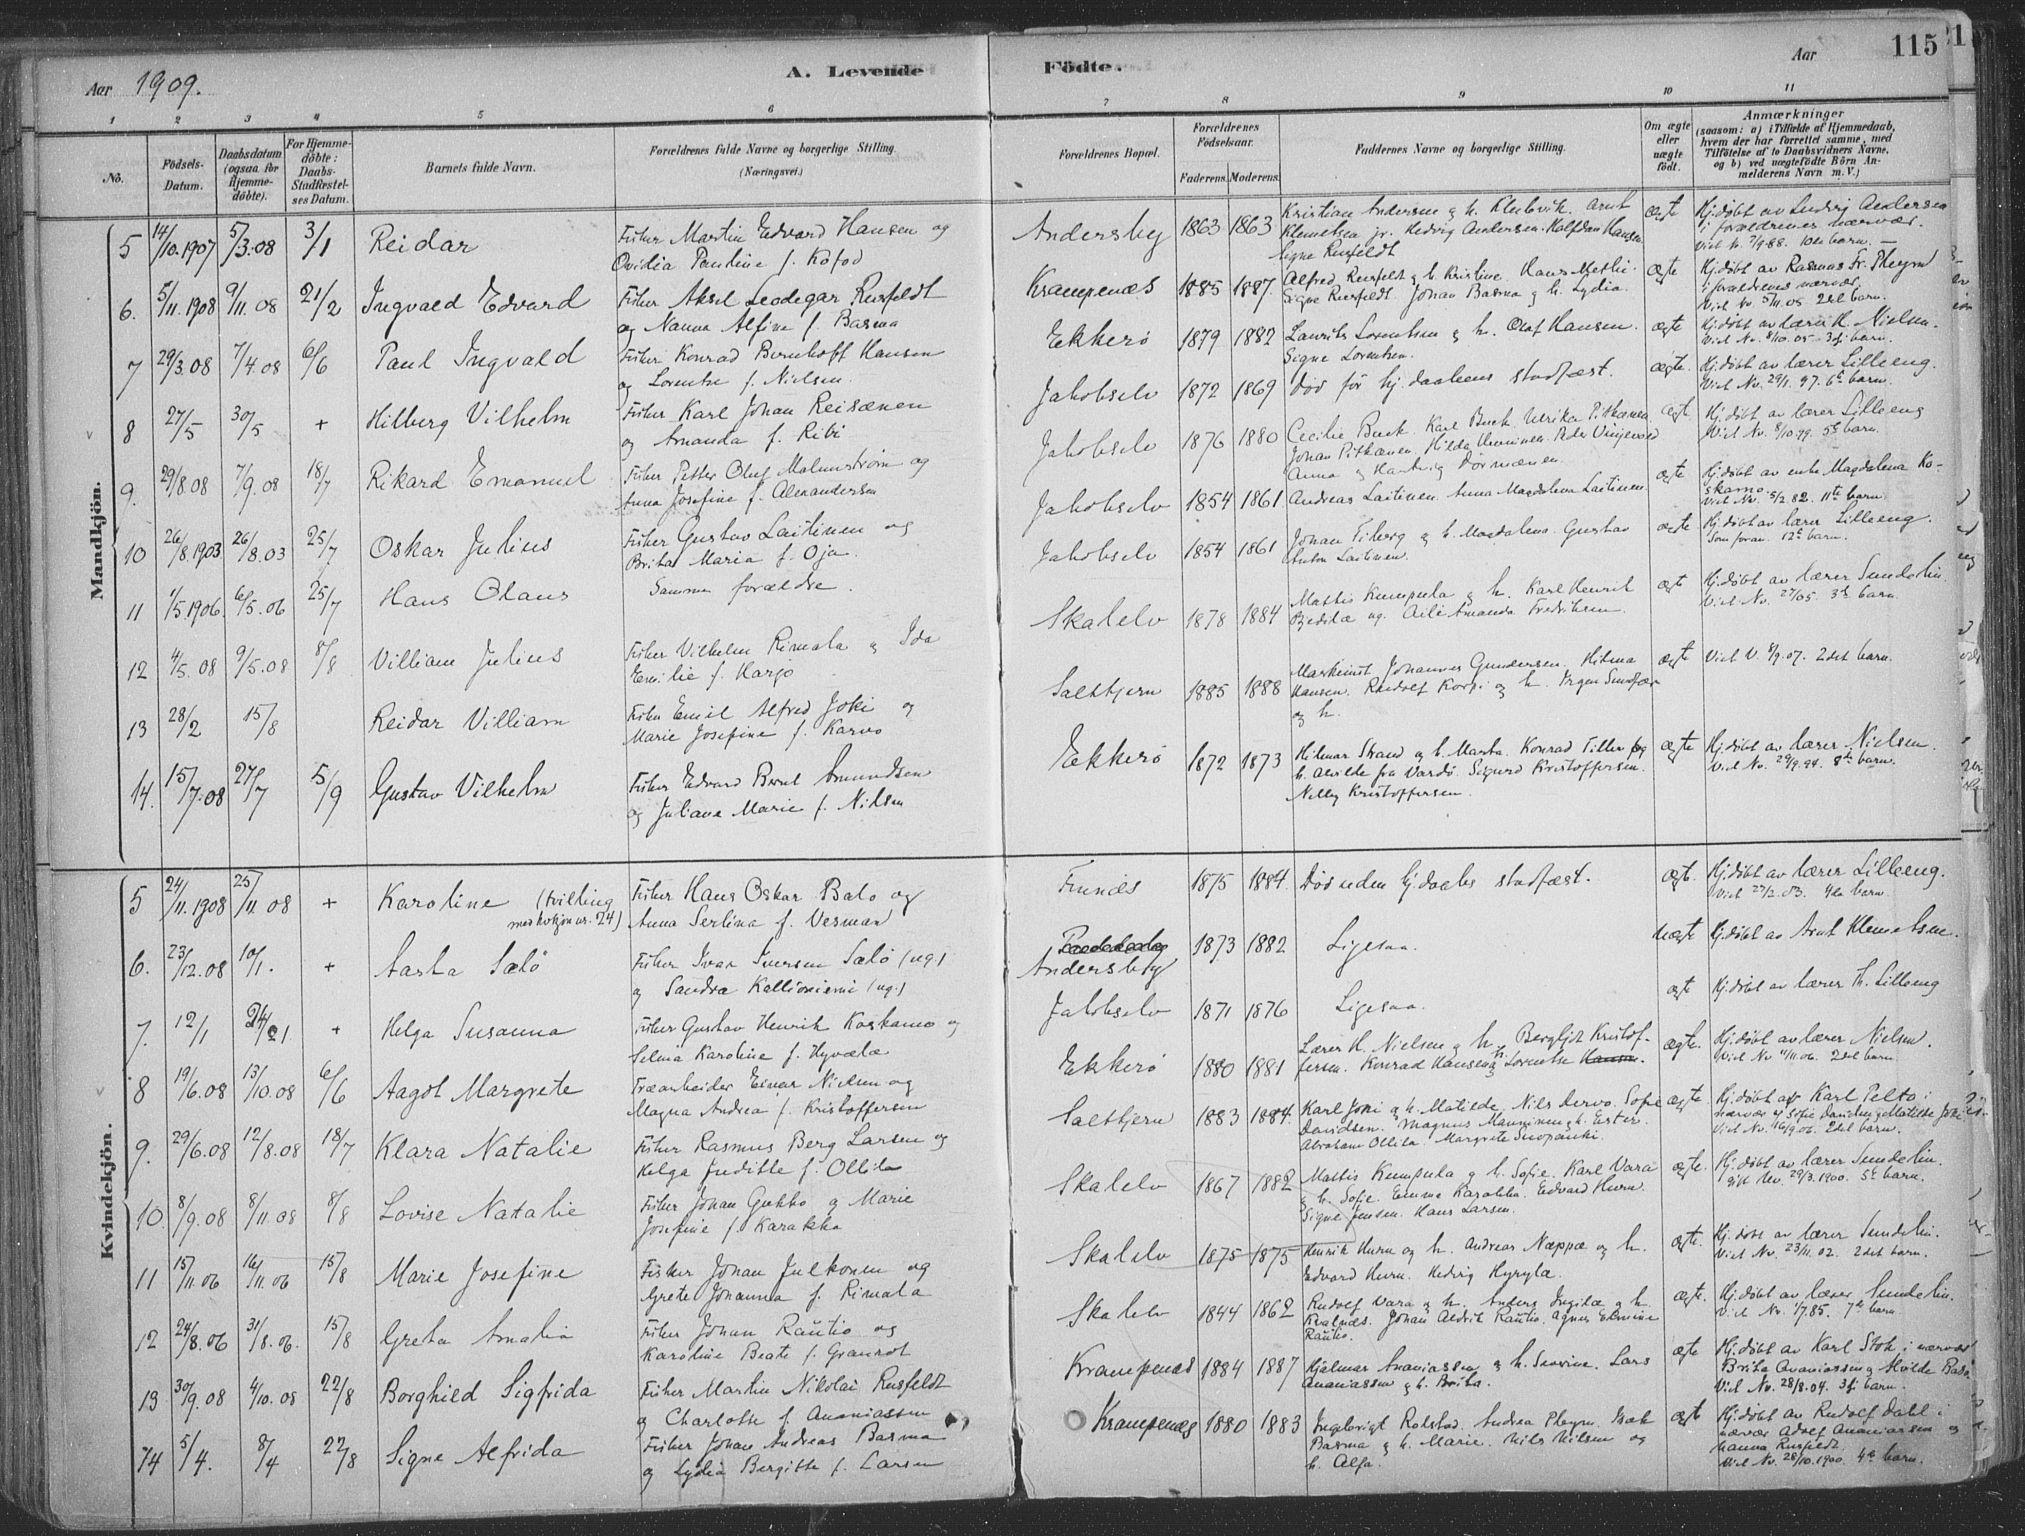 Aar 1909.
A. Levende Födte.
Aar
115
1 2 3 4 5 6 7 8 9 10 11
No.
Födsels-Datum.
Daabsdatum (ogsaa for Hjemme-døbte).
For Hjemme-döbte: Daabs-Stadfæstel-ses Datum.
Barnets fulde Navn.
Forældrenes fulde Navne og borgerlige Stilling. (Næringsvei.)
Forældrenes Bopæl.
Forældrenes Födselsaar.
Faderens. Moderens.
Faddernes Navne og borgerlige Stilling.
Om ægte eller uægte födt.
Anmærkninger
(saasom: a) i Tilfælde af Hjemmedaab, hvem der har forrettet samme, med Tilföielse af to Daabsvidners Navne, og b) ved uægtefödte Börn Anmelderens Navn m. V.)
Mandkjön.
5 14/10.1907 5/3.08 3/1 Reidar Fisker Martin Edvard Hansen og Ovidia Pauline f. Kofod Andersby 1863 1863 Kristian Andersen g h. Arnt Klemetsen jr. Hedvig Andersen. Halfdan Hansen. Signe Rusfeldt ægte Hj.døbt av Ludvig Andersen i forældrenes nærvær. Viet N. 7/9.88. 10de barn.
6. 5/11.1908 9/11.08 21/2 Ingvald Edvard Fisker Aksel Leodegar Rusfeldt og Nanna Alfine f. Basma Krampenæs 1885 1887. Alfred Rusfeldt g h. Kristine. Signe Rusfeldt. Johan Basma g h. Lydia. ægte Hj.døbt av Rasmus Fr. i forældrenes nærvær. Viet Nv. 5/11.05 2det barn.
7 29/3.08 7/4.08 6/6 Paul Ingvald Fisker Konrad Bernhoff Hansen og Lorentse f. Nielsen. Ekkerø 1879 1882 Laurits Lorentsen g h. Olaf Hansen. Signe Lorentsen. ægte Hj.døbt av lærer H. Nielsen. Viet Nv. 8/10.05 3dj barn.
8 27/5 30/5 + Hilberg Vilhelm Fisker Karl Johan Reisænen og Amanda f. Ribi Jakobselv 1872 1869 Død før hj.daabens stadfæst. ægte. Hj.døbt av lærer Lilleeng. Viet Nv. 29/1.97. 6te barn.
9. 29/8.08 7/9.08 18/7 Rikard Emanuel Fisker Petter Oluf Malmstrøm og Anna Josefine f. Alexandersen Jakobselv 1876 1880 Cecilie Buck. Karl Buck. Ulrika Pitkænen Johan Pitkænen. Hilda Anna g ægte Hj.døbt av lærer Lilleeng Viet Nv. 8/10.99. 5te barn.
10 26/8.1903 26/8.03 25/7 Oskar Julius Fisker Gustav Laitinen og Brita Maria f. Oja. Jakobselv 1854 1861 Andreas Laitinen. Anna Magdalena Laitinen ægte Hj.døbt av enke Magdalena Koskamo. Viet Nv. 5/2.82. 11te barn.
11 1/5.1906. 6/5.06 25/7 Hans Olaus Samme forældre. Jakobselv 1854 1861 Johan Eiberg g h. Magdalena. Gustav Anton Laitinen. ægte Hj.døbt av lærer Lilleeng. Som foran. 12te barn.
12 4/5.08 9/5.08 8/8 Villiam Julius Fisker Vilhelm Rimala g Ida Emilie f. Harjo Skalelv 1878 1884 Mattis Kumpula g h. Karl Henrik ug. Aili Amanda Fredriksen. ægt Hj.døbt av lærer Sundelin. Viet Nv. 27/05. 3dj barn.
13 28/2 15/8 Reidar Villiam Fisker Emil Alfred Joki og Marie Josefine f. Karvo Saltbjern 1885 1888 Johannes Gundersen. Hilma Hansen. Rudolf Korpi og h. og h. ægte Viet V. 8/9.07. 2det barn.
14. 15/7.08 27/7 5/9 Gustav Vilhelm Fisker Edvard Bernt Amundsen og Juliane Marie f. Nilsen Ekkerø 1872 1873 Hilmar Strand og h. Marta. Konrad Tiller og h. Alvilde fra Vardø. Sigurd Kristoffersen. Nelly Kristoffersen. ægte Hj.døbt av lærer Nielsen. Viet Nv. 29/9.94. 8de barn.
Kvindekjön.
5 24/11.1908 25/11.08 + Karoline (tvilling med kvkjøn nr. 24) Fisker Hans Oskar Balo og Anna Serlina f. Vesman Finnæs 1875 1884. Død uden hj.daabs stadfæst. ægt. Hj.døbt av lærer Lilleeng. Viet 27/2.03. 4de barn
6. 23/12.08 10/1. + Aasta Sælø Fisker Ivar Iversen Sælø (ug.) og Sandra Kallioniemi (ug.) Andersby 1873 1882 Ligesaa. uægte Hj.døbt av Arnt Klemetsen.
7. 12/1 24/1 + Helga Susanna Fisker Gustav Henrik Koskamo og Selma Karoline f. Hyvælæ Jakobselv 1871 1876 Ligesaa. ægte Hj.døbt av lærer H. Lilleeng
8 19/6.08 13/10.08 6/6 Aagot Margrete Træarbeider Einar Nielsen og Magna Andrea f. Kristoffersen Ekkerø 1880 1881 Lærer H. Nielsen g h. Bergljot Kristoffersen. Konrad Hansen g Lorentse Hansen. ægte. Hj.døbt av lærer Nielsen. Viet Nv. 11/11.06. 2det barn.
9. 29/6.08 12/8.08 18/7 Klara Natalie Fisker Rasmus Berg Larsen og Helga Juditte f. Ollila Saltbjern 1883 1884. Karl Joki g h. Matilde. Nils Dervo. Sofie Davidsen. Magnus Manninen g h. Ester. Abraham Ollila. Margrete ægte. Hj.døbt af Karl Pelto i nærvær af Sofie Davidsen g Matilde Joki. Viet Nv. 16/9.06. 2det barn.
10. 8/9.08 8/11.08 8/8 Lovise Natalie Fisker Johan Gukko g Marie Josefine f. Karakka Skalelv 1867 1882 Mattis Kumpula g h. Sofie. Karl Vara g h. Sofie. Emma Karakka. Edvard Hurn. Signe Jensen. Hans Larsen. ægte. Hj.døbt av lærer Sundelin. gift Nv. 29/3.1900. 5te barn.
11 15/11.06 16/11.06 15/8 Marie Josefine Fisker Johan Julkonen og Grete Johanna f. Rimala Skalelv 1875 1875 Henrik Hurn og h. Andreas Næppæ og h. Edvard Hurn. Hedvig Hyrylæ. ægte. Hj.døbt av lærer Sundelin. Viet Nv. 23/11.02. 2det barn.
12 24/8.06 31/8.06. 15/8 Greta Amalia Fisker Johan Rautio og Karoline Beate f. Granrot Skalelv 1844 1862 Rudolf Vara g h. Anders g h. Kvalnæs. Johan Aldrik Rautio. Agnes Elevine Rautio. ægte. Hj.døbt av lærer Sundelin. Viet Nv. 1/7.85. 7de barn.
13 30/9.08 4/10.08 22/8 Borghild Sigfrida Fisker Martin Nikolai Rusfeldt g Charlotte f. Ananiassen Krampenæs 1884 1887 Hjalmar Ananiassen g h. Lars Ananiassen g h. Brita. ægte Hj.døbt av Karl Stok i nærvær Brita Ananiassen g Alvilde Basma Viet Nv. 28/8.04. 3dj barn.
14 5/4. 8/4 22/8 Signe Alfrida Fisker Johan Andreas Basma og Lydia Bergitte f. Larsen Krampenæs 1880 1883 Ingebrigt Rolstad. Andrea Isak Basma g h. Marie. Nils Nilsen og h. Alfa. ægte Hj.døbt av Rudolf Dahl i nærvær Adolf Ananiassen og Nanna Rusfeldt. Viet Nv. 28/10.1900. 4de barn.